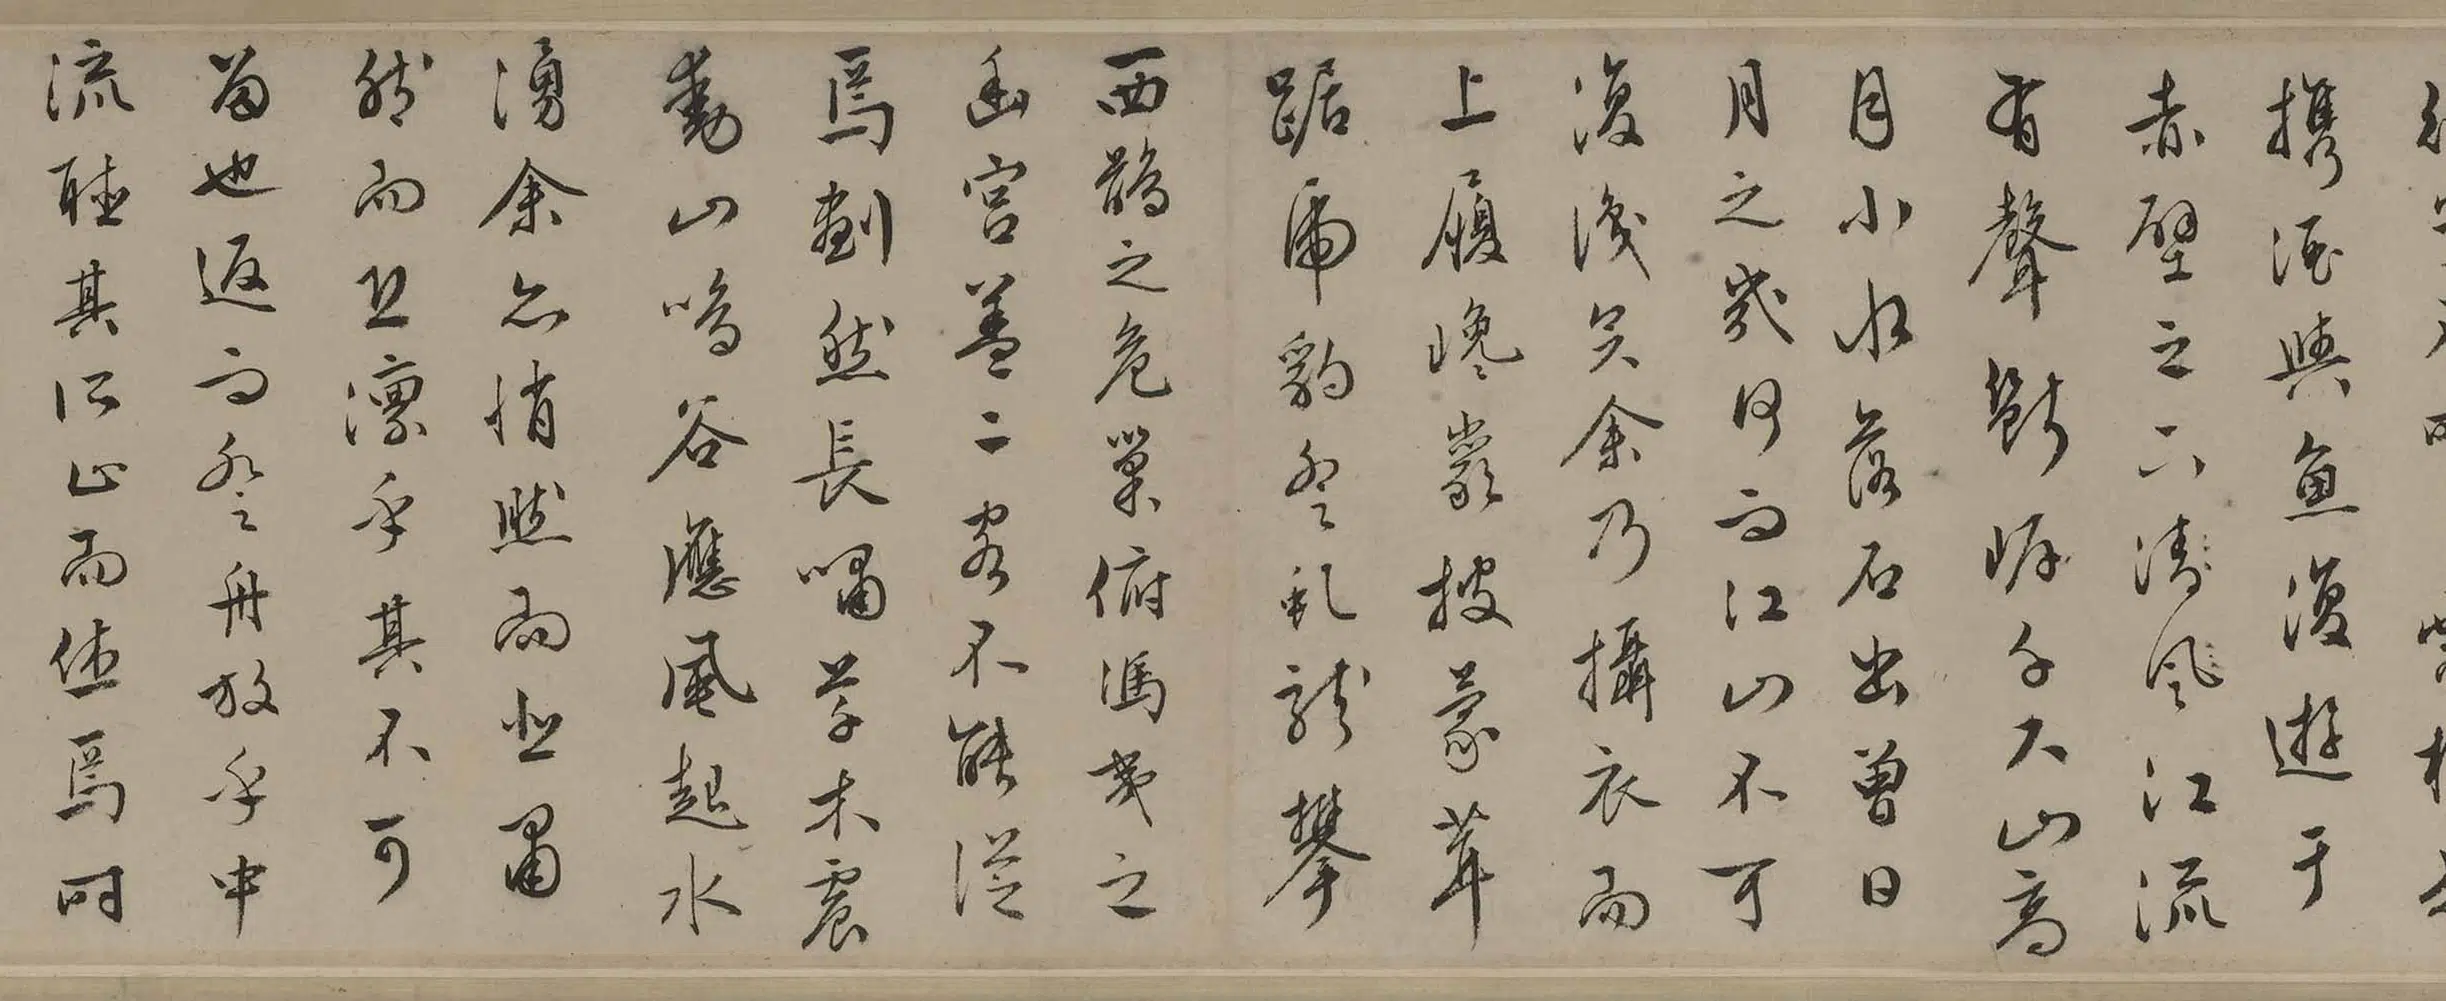 攜酒與魚復遊于
赤壁之下清風江流
有聲斷岸千尺山高
月小水落石出曾日
月之幾何而江山不可
復識矣余乃攝衣而
上履巉巖披蒙茸
踞虎豹登虬龍攀
西鶻之危巢俯馮夷之
幽宮蓋二客不能從
焉劃然長嘯草木震
動山鳴谷應風起水
湧余亦悄然而悲肅
然而恐凜乎其不可
留也返而登舟放乎中
流聽其所止而休焉時